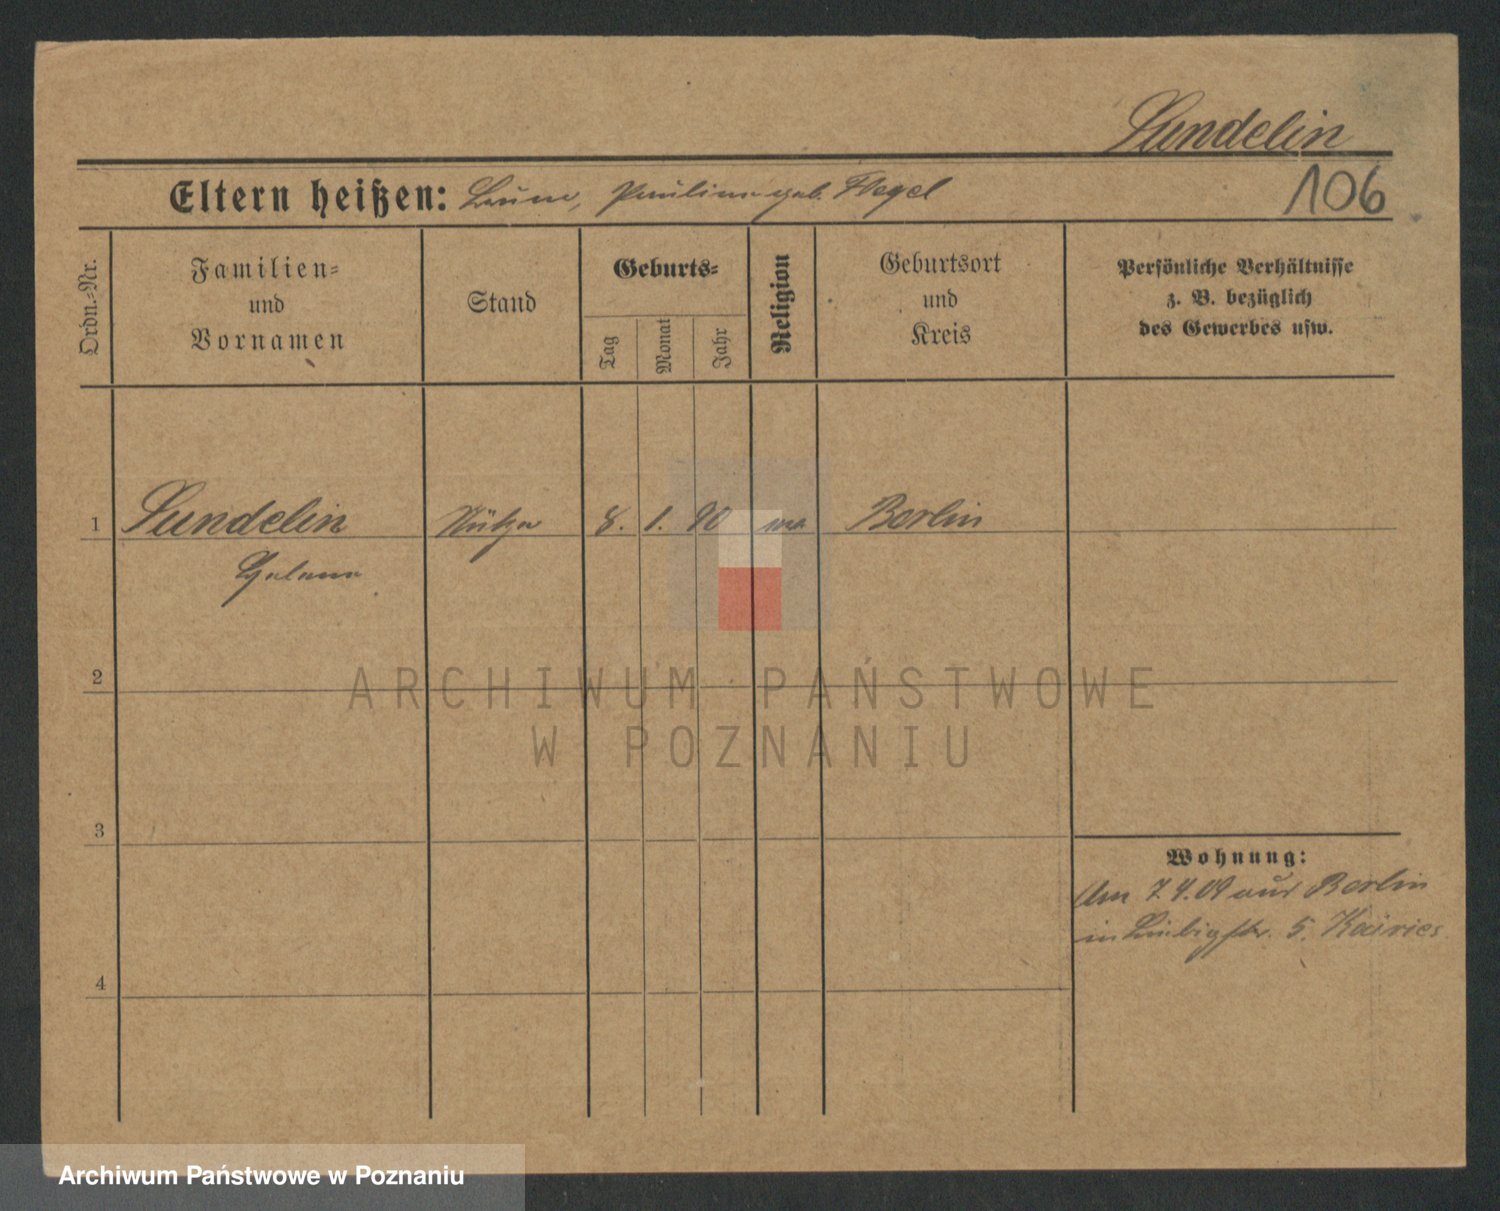 Sundelin
Eltern heißen: Pauline geb. Flegel
106
Ordn.-Nr.
Familien-
und
Vornamen
Stand
Geburts-
Tag
Monat
Jahr
Religion
Geburtsort
und
Kreis
Persönliche Verhältnisse
z. B. bezüglich
des Gewerbes usw.
1 Sundelin Stütze 8. 1. 90 Berlin
Helene
2
3
4
Wohnung:
Am 7.4.09 aus Berlin
in 5. Kairies
ARCHIWUM PAŃSTWOWE
W POZNANIU
Archiwum Państwowe w Poznaniu